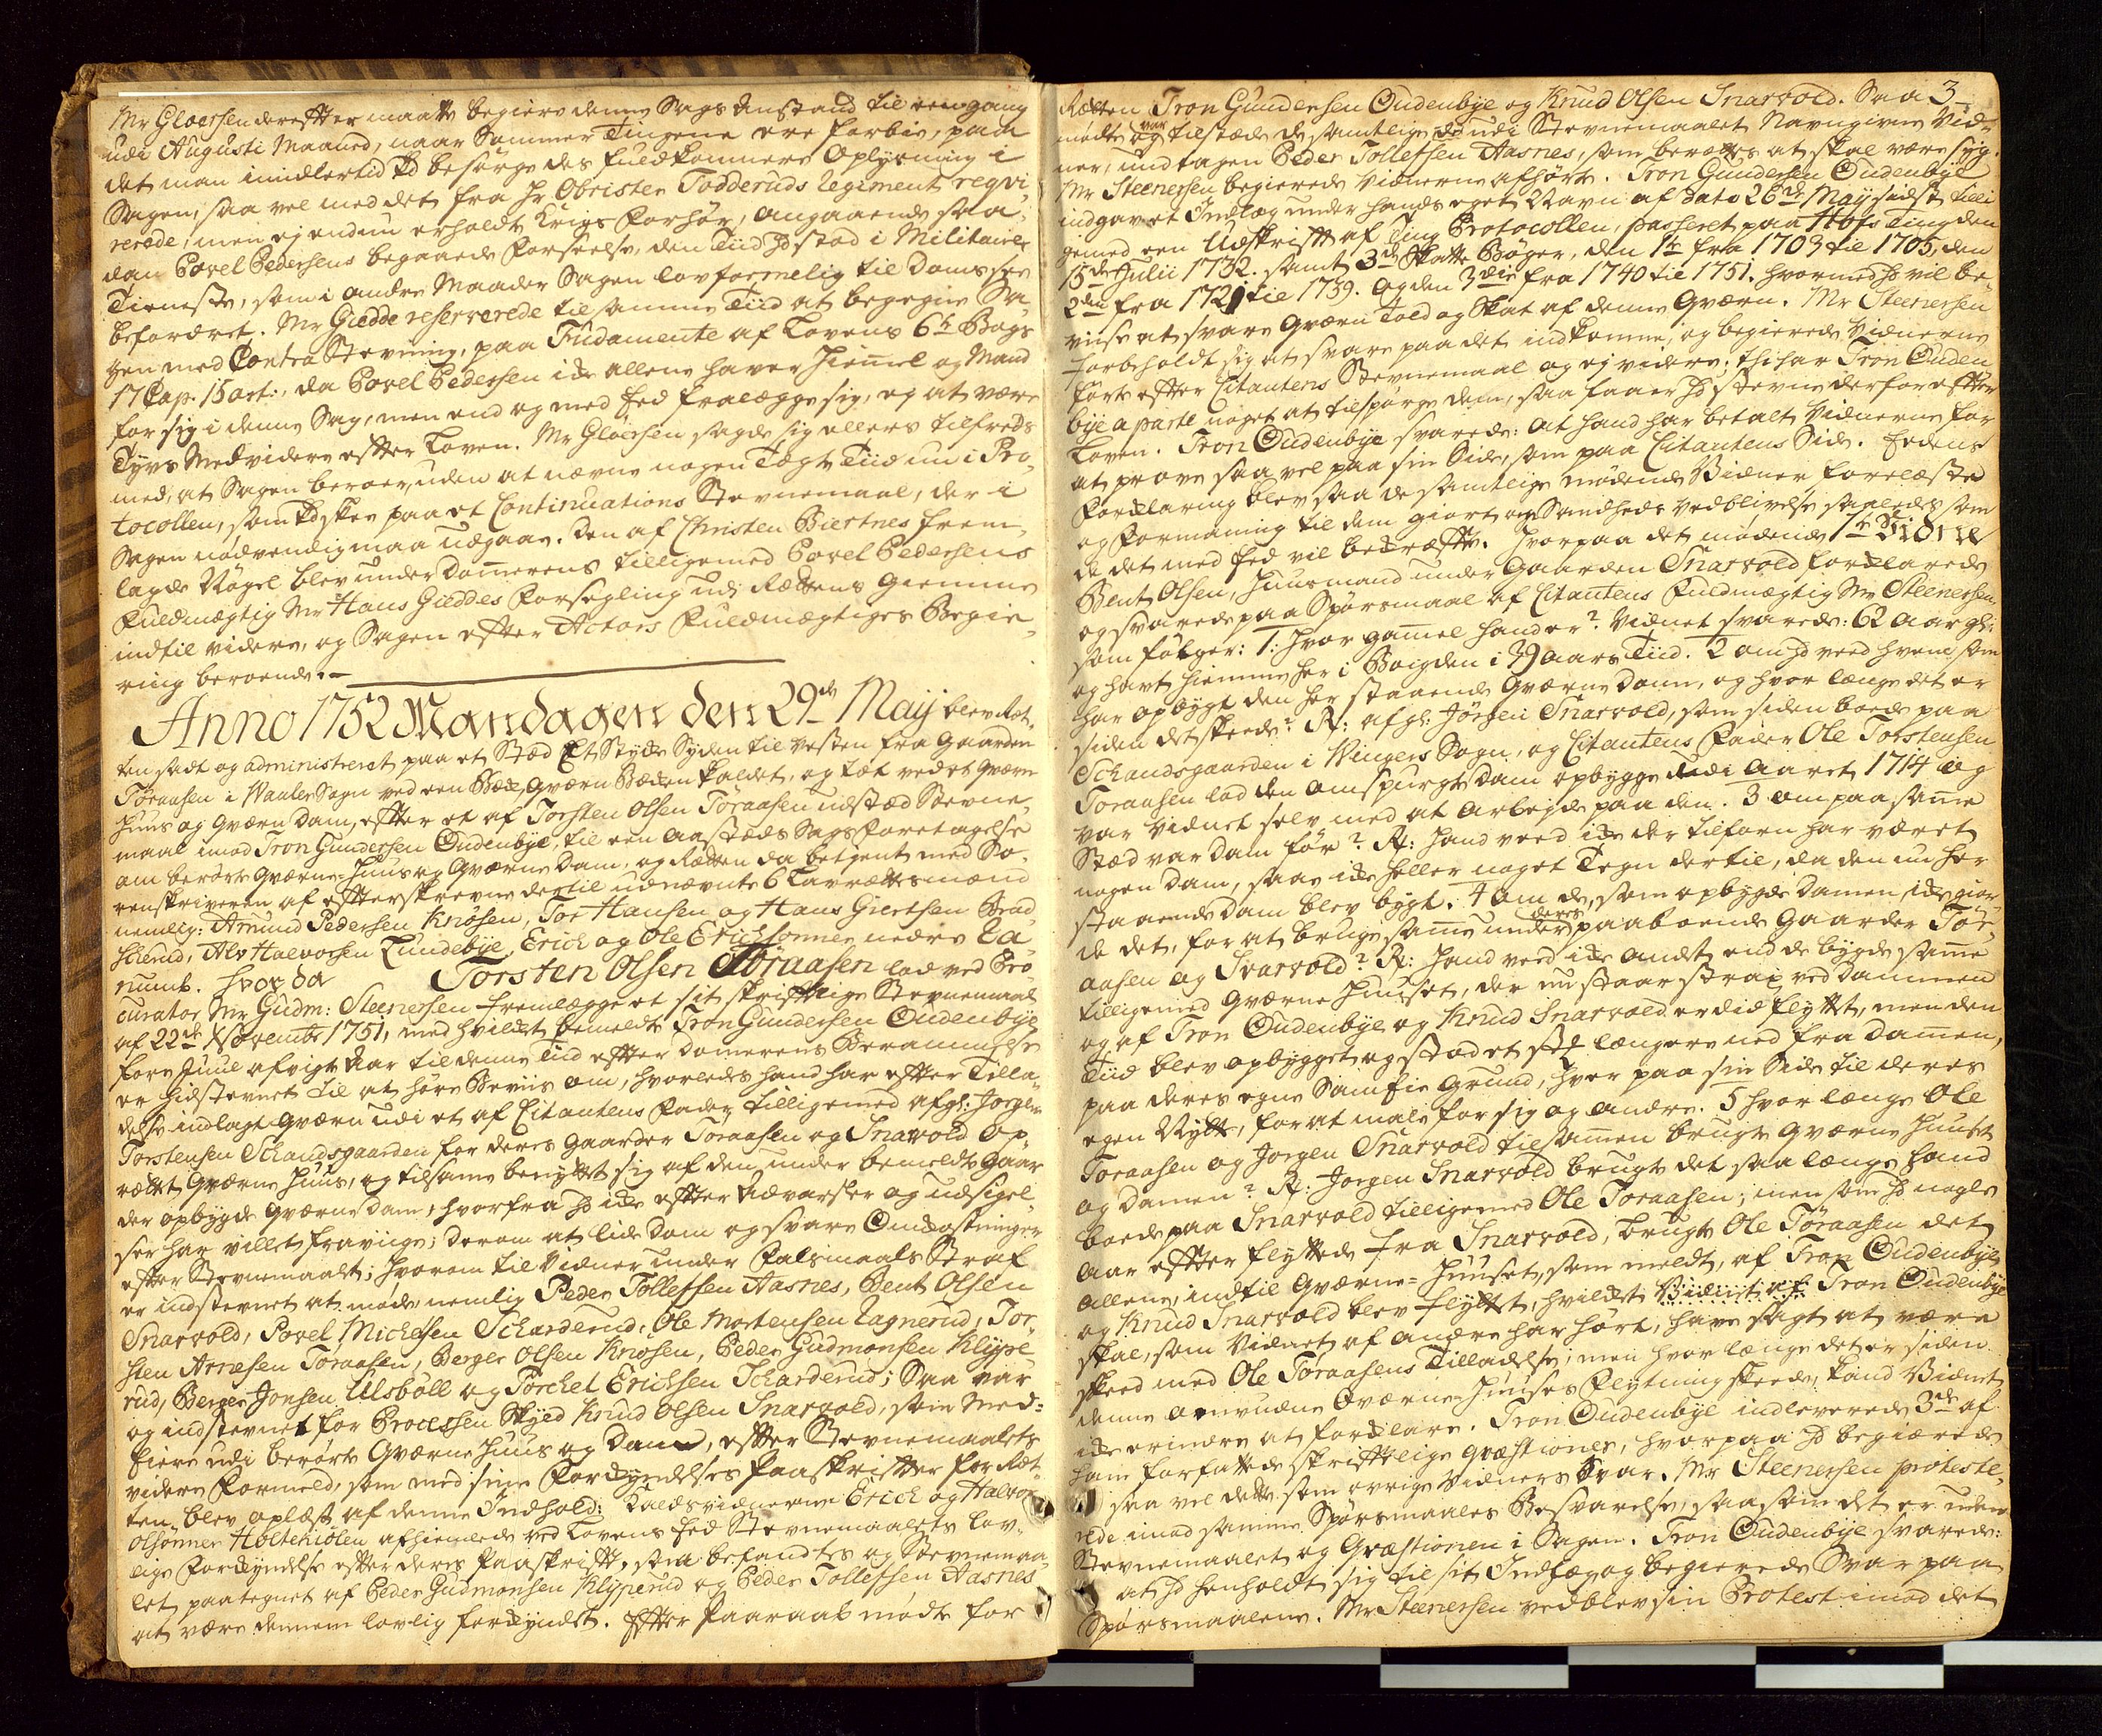 Mr Gloersen derefter maatte begiere denne Sags Anstand til een gang
udi Augusti Maaned, naar Sommer Tingene ere forbie, paa
det man imidlertid kd besørge des fuldkomnere Oplysning i
Sagen, saa vel med det fra Hr Obrister Todderuds Regiment reqvi-
rerede, men ej endnu erholdte Krigs Forhør, angaaende saa-
dan Povel Pedersens begaaede Forseelse, den Tiid hd stod i Militaire
Tieneste, som i andre Maader Sagen lovformelig til Doms see
befordret. Mr Giedde reserverede til samme Tiid at begegne Sa-
gen med Contra Stevning, paa Fudamente af Lovens 6te Bogs
17 Cap. 15 art:, da Povel Pedersen icke allene haver Hiemel og Mand
for sig i denne Sag, men end og med Eed fralægge sig, ej at være
Tyvs Med videre efter Loven. Mr Gloersen sagde sig ellers tilfreds
med, at Sagen beroer, uden at nævne nogen Tægte Tiid nu i Pro-
tocollen, som kd skee paa et Continuations Stevnemaal, der i
Sagen nødvendig maa udgaae. Den af Christen Biertnes frem-
lagde Nøgel blev under Domerens tilligemed Povel Pedersens
Fuldmægtig Mr Hans Gieddes Forsegling udi Rettens Giemme
indtil videre, og Sagen efter Actors Fuldmægtiges Begie-
ring beroende. –
Anno 1752 Mandagen den 29de Maij blev Ret-
ten sadt og administreret paa et Stæd Et Stycke Synden til Vesten fra Gaarden
Toraasen i Waaler Sogn ved een Bæk, Qværn Bæcken kaldet, og tæt ved et Qværn
Huus og Qværn Dam, efter et af Torsten Olsen Toraasen udstæd Stevne-
maal imod Tron Gundersen Oudenbye, til een Aastæds Sags Foretagelse
om berørte Qværne-Huus og Qværne Dam, og Retten da betient med So-
renskriveren af efterskrevne dertil udnævnte 6 Lavrettesmænd
nemlig: Amund Pedersen Knøsen, Tor Hansen og Hans Giertsen Brad-
skerud, Alv Halvorsen Lundebye, Erich og Ole Erichsønner nedre Ra-
num. Hvor da Torsten Olsen Toraasen lod ved Pro-
curator Mr Gudm: Steenersen fremlægge et sit skriftlige Stevnemaal
af 22de Novembr 1751, med hvilcket bemeldte Tron Gundersen Oudenbye
fore Juul afvigte Aar til denne Tiid efter Domerens Berammelse
er hidstevnet til at høre Beviis om, hvorledes hand har efter Tilla-
delse indlagt Qværn udi et af Citantens Fader tilligemed afgl: Jorgen
Torstensen Schandsgaarden for deres Gaarder Toraasen og Snarvold op-
rettet Qværne Huus, og tilsame benyttet sig af den under bemeldte Gaar-
der opbygde Qværne Dam, hvorfra hd icke efter Advarsler og udsigel-
ser har villet fravige; derom at lide Dom og svare Omkostninger
efter Stevnemaalet; hvorom til Vidner under Falsmaals Straf
er indstevnet at møde, nemlig Peder Tollefsen Aasnes, Bent Olsen
Snarvold, Povel Michelsen Scharderud, Ole Mortensen Ragnerud, Tor-
sten Arnesen Toraasen, Berger Olsen Knøsen, Peder Gudmonsen Klype-
rud, Berger Jonsen Ulsbøll og Torchel Erichsen Scharderud; Saa var
og indstevnet for Processen Skyld Knud Olsen Snarvold, som Med-
Eiere udi berørte Qværne Huus og Dam, efter Stevnemaalets
videre Formeld, som med sine Forkyndelses Paaskrifter for Ret-
ten blev oplæst af denne Indhold: Kaldsvidnerne Erich og Halvor
Olsønner Holtehiølen afhiemlede ved Lovens Eed Stevnemaalets Lov-
lige Forkyndelse efter deres Paaskrift, saa befandtes og Stevnemaa-
let paategnet af Peder Gudmonsen Klyperud og Peder Tollefsen Aasnes
at være dennem lovlig forkyndet. Efter Paaraab mødte for
3
Retten Tron Gundersen Oudenbye og Knud Olsen Snarvold. Saa
mødte og var tilstæde de samtlige de udi Stevnemaalet Navngivne Vid-
ner, undtagen Peder Tollefsen Aasnes, som berettes at skal være syg.
Mr Steenersen begierede Vidnerne afhørte. Tron Gundersen Oudenbye
indgav et Indlæg under hands eget Navn af Dato 26de Maij sidst, tilli-
gemed een Udskrift af Ting Protocollen, passeret paa Hofs Ting den
15de Julii 1732. samt 3de Skatte Bøger, den 1te fra 1703 til 1705, den
2den fra 1721 til 1739. og den 3die fra 1740 til 1751. hvormed hd vil be-
viise at svare Qværn Told og Skat af denne Qværn. Mr Steenersen
forbeholdt sig at svare paa det indkomne, og begierede Vidnerne
førte efter Citantens Stevnemaal og ej videre; thi har Tron Ouden-
bye a parte noget at tilspørge dem, saa faaer hd stevne derfor efter
Loven. Tron Oudenbye svarede: at hand har betalt Vidnerne for
at prove saa vel paa sin Side, som paa Citantens Side. Eedens
Forklaring blev saa de samtlige mødende Vidner forelæste
og Formaning til dem giort om Sandheds Vedblivelse saaledes som
de det med Eed vil bekræfte. Hvorpaa det mødende 1te Vidne
Bent Olsen, Huusmand under Gaarden Snarvold forklarede
og svarede paa Spørsmaal af Citantens Fuldmægtig Mr Steenersen
som følger: 1: hvor gamel hand er? Vidnet svarede: 62 Aar gl:
og havt hiemme her i Boigden i 39 aars Tiid. 2 om hd veed hvem som
har opbygt den her staaende Qværne Dam, og hvor længe det er
siden det skeede? R: afgl: Jørgen Snarvold, som siden boede paa
Schandsgaarden i Wingers Sogn, og Citantens Fader Ole Torstensen
Toraasen lod den omspurgte Dam opbygge udi Aaret 1714 og
var Vidnet selv med at arbejde paa den. 3 om paa same
Stæd var Dam før? R: hand veed icke der tilforn har været
nogen Dam, saae icke heller noget Tegn dertil, da den nu her
staaende Dam blev bygt. 4 om de, som opbygde Damen, icke gior-
de det, for at bruge same under deres paaboende Gaarder Tor-
aasen og Snarvold? R: hand veed icke andet end de bygde same
tilligemed Qværne Huuset, der nu staar strax ved Dammen
og af Tron Oudenbye og Knud Snarvold er did flyttet, men den
Tiid blev opbygget og stod et stk længere ned fra Damen,
paa deres egne Samfie Grund, hver paa sin Side til deres
egen Nytte, for at male for sig og andre. 5 hvor længe Ole
Toraasen og Jorgen Snarvold tilsamen brugte Qværne Huuset
og Damen? R: Jorgen Snarvold brugte det saa længe hand
boede paa Snarvold tilligemed Ole Toraasen; men som hd nogle
Aar efter flyttede fra Snarvold, brugte Ole Toraasen det
allene, indtil Qværne-Huuset, som meldt, af Tron Oudenbye
og Knud Snarvold blev flyttet, hvilcket Vidnet af Tron Oudenbye
skal, som Vidnet af andre har hørt, have sagt at være
skeed med Ole Toraasens Tilladelse; men hvor længe det er siden
denne omrundne Qværne-Huuses Flytning skeede, kand Vidnet
icke erindre at forklare. Tron Oudenbye indleverede 3de af
ham forfattede skriftlige Qvæstioner, hvorpaa hd begierede
saa vel dette som øvrige Vidners Svar. Mr Steenersen proteste-
rede imod samme Spørsmaales Besvarelse, saasom det er uden
Stevnemaalet og Qvæstionen i Sagen. Tron Oudenbye svarede:
at hd henholdt sig til sit Indlæg og begierede Svar paa
Spørsmaalene. Mr Steenersen vedblev sin Protest imod det